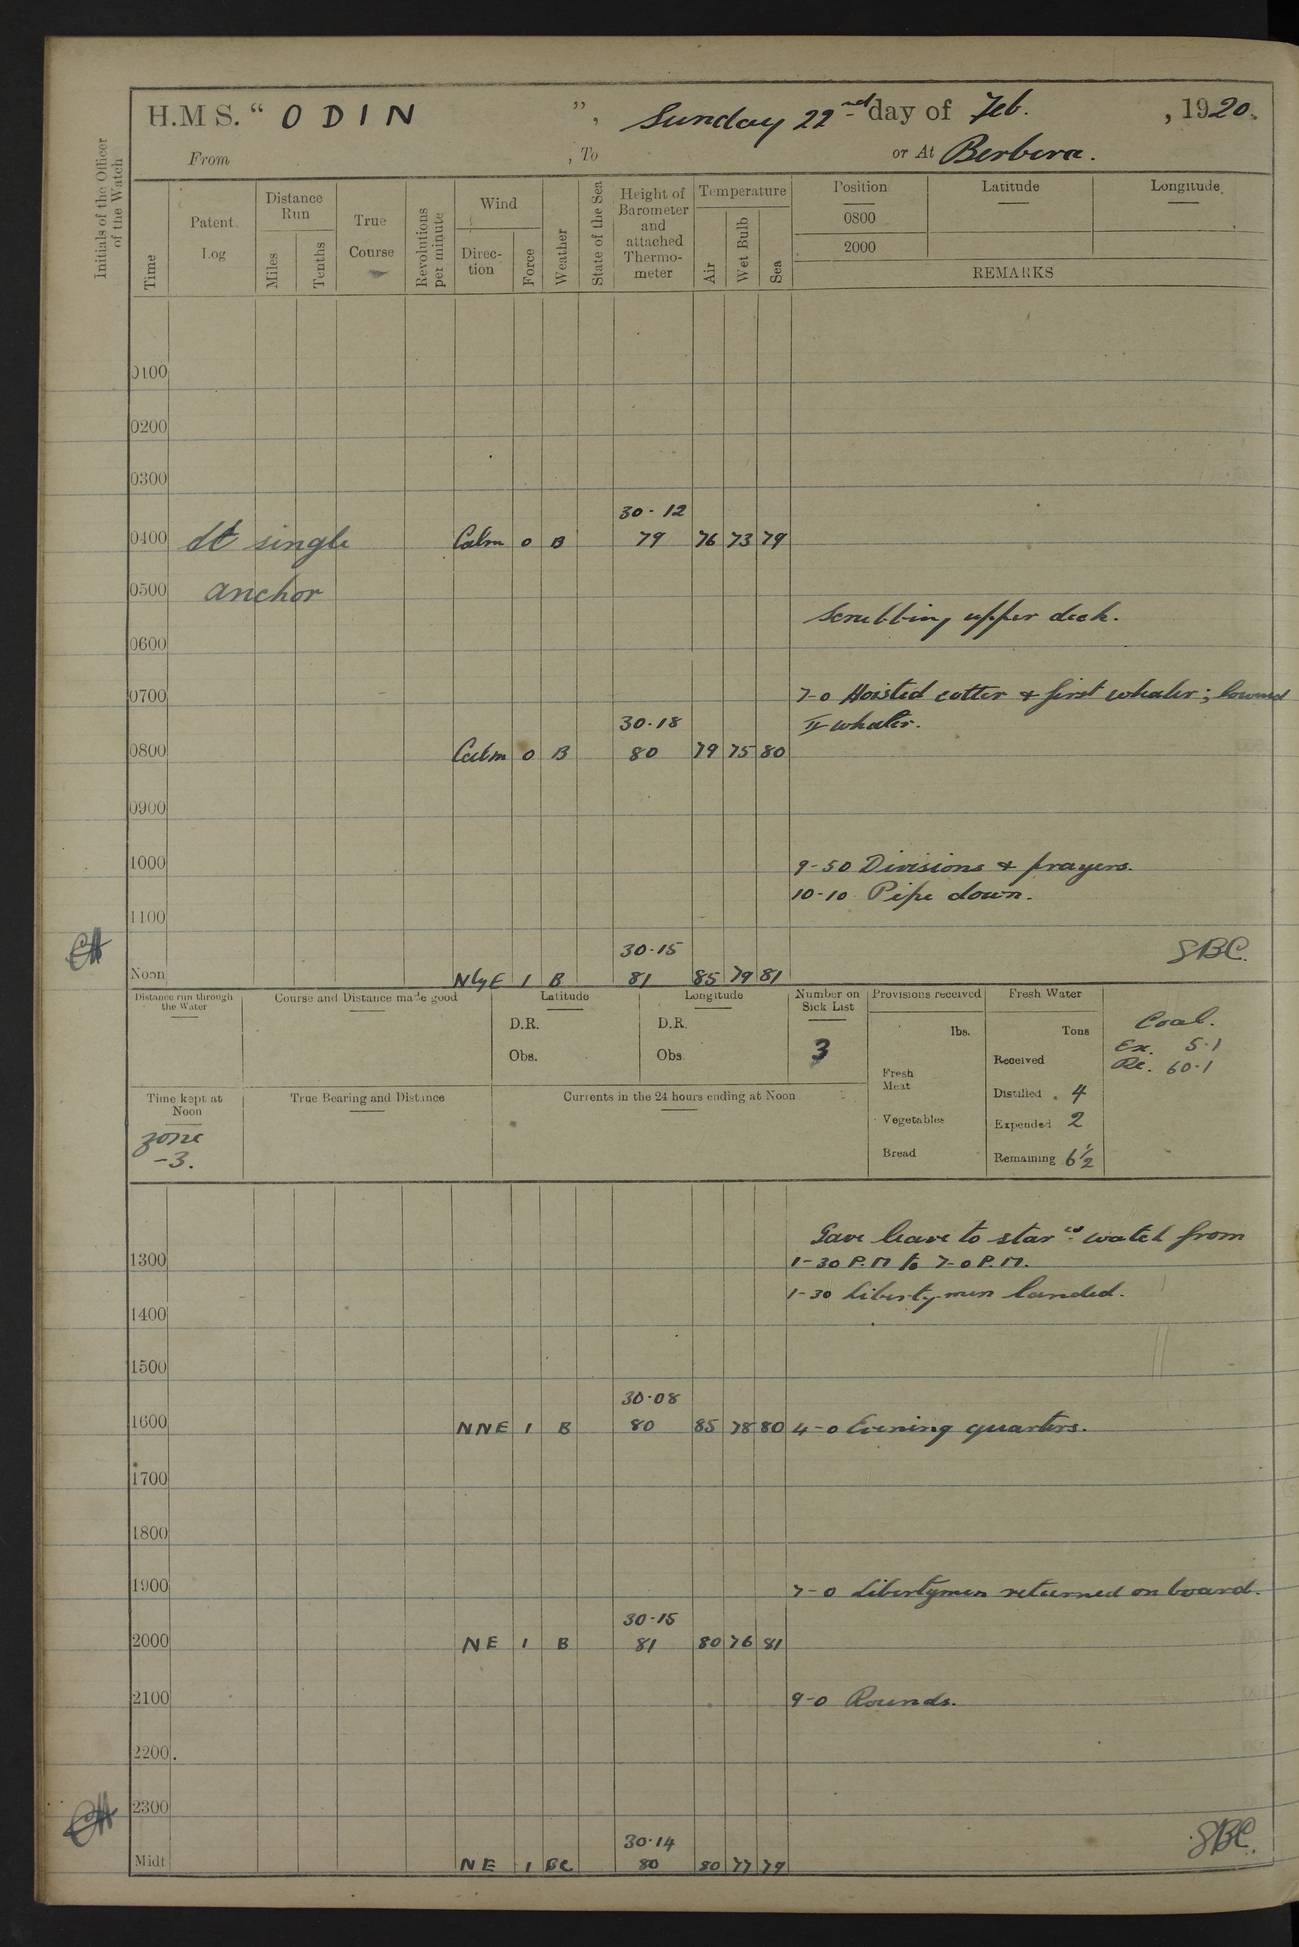 H.M S. “ ODIN ”, Sunday 22nd day of Feb. , 1920.
From , To or At Berbera.
Initials of the Officer of the Watch
Time
Patent Log
Distance Run
Miles
Tenths
True Course
Revolutions per minute
Wind
Direction
Force
Weather
State of the Sea
Height of Barometer and attached Thermometer
Temperature
Air
Wet Bulb
Sea
Position Latitude Longitude
0800
2000
REMARKS
0100
0200
0300
30·12
0400 At single Calm 0 B 79 76 73 79
0500 anchor
Scrubbing upper deck.
0600
0700 7-0 Hoisted cutter & first whaler; lowered
30·18 II whaler.
0800 Calm 0 B 80 79 75 80
0900
1000 9-50 Divisions & prayers.
10-10 Pipe down.
1100
30·15 SBC.
Noon NbyE 1 B 81 85 79 81
Distance run through the Water
Course and Distance made good
Latitude
D.R.
Obs.
Longitude
D.R.
Obs
Number on Sick List
3
Provisions received
lbs.
Fresh Meat
Vegetables
Bread
Fresh Water
Tons
Received
Distilled 4
Expended 2
Remaining 6½
Coal.
Ex. 5·1
Re. 60·1
Time kept at Noon
zone
-3.
True Bearing and Distance
Currents in the 24 hours ending at Noon
Gave leave to starbd watch from
1300 1-30 P.M to 7-0 P.M.
1-30 Libertymen landed.
1400
1500
30·08
1600 NNE 1 B 80 85 78 80 4-0 Evening quarters.
1700
1800
1900 7-0 Libertymen returned on board.
30·15
2000 NE 1 B 81 80 76 81
2100 9-0 Rounds.
2200.
2300
30·14 SBC.
Midt NE 1 BC 80 80 77 79